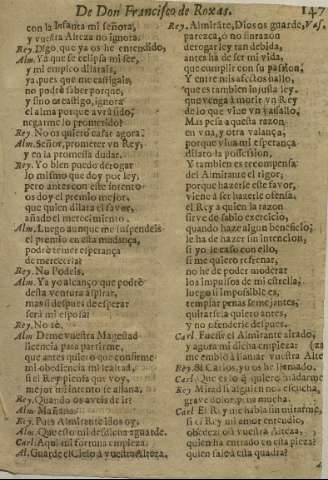 De Don Francisco de Roxas. 147
con la Infanta mi señora,
y vuestra Alteza no ignora.
Rey. Digo que ya os he entendido,
Alm. Ya que se eclipsa mi fee,
y mi empleo dilatais,
ya pues que me castigais,
no podrè saber porque,
y sino castigo, ignora
el alma porque avrà sido,
negarme lo prometido?
Rey. No os quiero casar agora?
Alm. Señor, prometer vn Rey,
y en la promessa dudar.
Rey. Yo bien puedo derogar
lo mismo que doy por ley,
pero antes con este intento
os doy el premio mejor,
que quien dilata el favor,
añade el merecimiento.
Alm. Luego aunque me suspendeis
el premio en esta mudança,
podrè tener esperança
de merecerla?
Rey. No Podeis.
Alm. Ya yo alcanço que podrè
desta ventura aspirar,
mas si despues de esperar
serà mi esposa?
Rey. No sè.
Alm. Deme vuestra Magestad
licencia para partirme,
que antes quiero que confirme
mi obediencia mi lealtad,
si el Rey piensa que voy,
mejor mi intento le allana.
Rey. Quando os aveis de ir?
Alm. Mañana.
Rey. Pues Almirante idos oy.
Alm. Que esto mi desdicha aguarde.
Carl. Aqui mi fortuna empieza.
Al. Guarde el Cielo à vuestra Alteza.
Rey. Almirante, Dios os guarde, Vas.
parezca, ò no sinrazon
derogar ley tan debida,
antes ha de ser mi vida,
que cumplir con su passion,
Y entre mis afectos hallo,
que es tambien injusta ley,
que venga à morir vn Rey
de lo que vive vn vasallo.
Mas pesa aquesta razon
en vna, y otra valança,
porque viva mi esperança
dilato la possession,
Y tambien es recompensa
del Almirante el rigor,
porque hazerle este favor,
viene à ser hazerle ofensa,
el Rey a quien la razon
sirve de sabio exercicio,
quando haze algun beneficio,
le ha de hazer sin intencion,
si yo le caso con ello,
si me quiero refrenar,
no he de poder moderar
los impulsos de mi estrella:
luego si impossible es,
templar penas semejantes,
quitarsela quiero antes,
y no ofenderle despues.
Carl. Fuesse el Almirante airado,
y agora mi dicha empieze,
me embiò à llamar vuestra Alte
Rey. Si Carlos, yo os he llamado.
Carl. Que es lo que quiero mandarme
Rey. Mirad si alguien nos escucha,
grave dolor, pena mucha.
Carl. El Rey me habla sin mirarme,
si el Rey mi amor entendio,
obedezco à vuestra Alteza,
quien ha entrado en esta pieza?
quien sale à esta quadra?